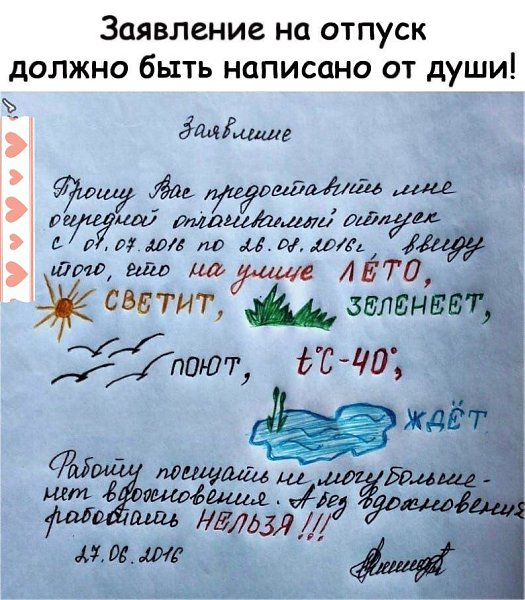 Заявление на отпуск
должно быть написано от души!
Заявление
Прошу Вас предоставить мне
очередной оплачиваемый отпуск
с 01.07.2016 по 26.07.2016г. ввиду
того, что на улице ЛЕТО,
СВЕТИТ, ЗЕЛЕНЕЕТ,
ПОЮТ, t°C-40°,
ЖДЁТ
Работу посещать не могу больше -
нет вдохновения. А без вдохновения
работать НЕЛЬЗЯ!!!
27.06.2016